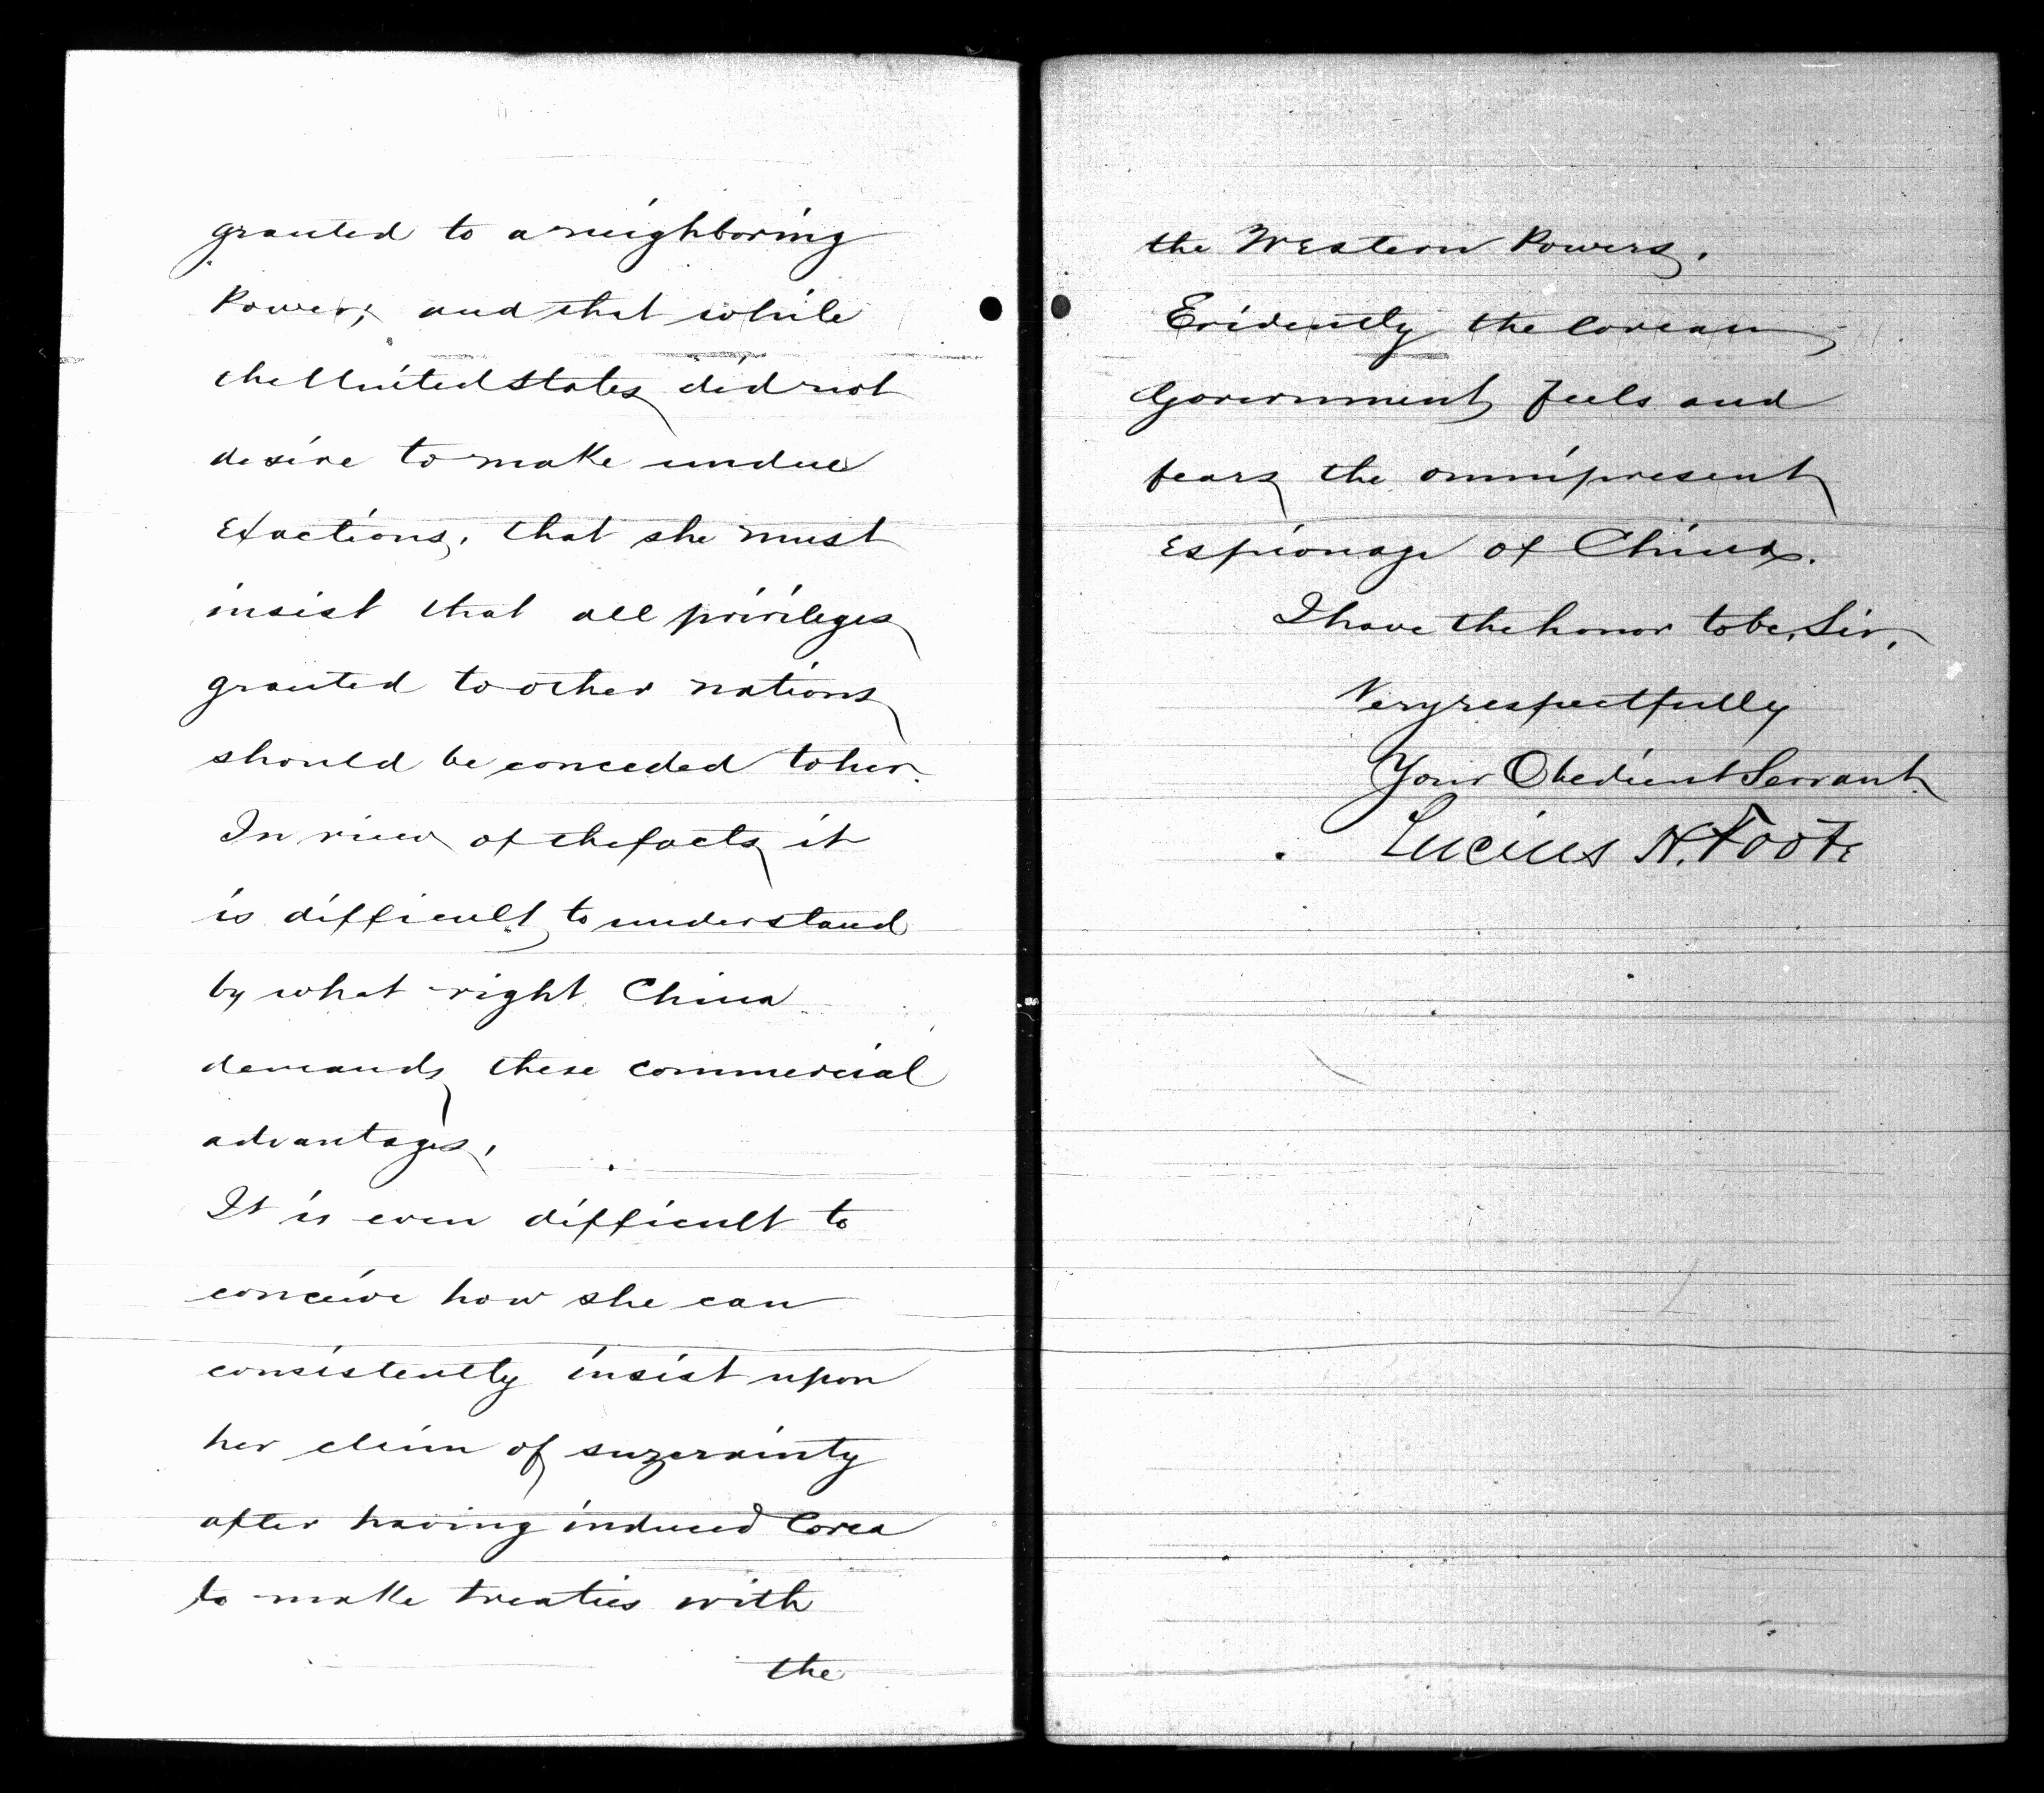 granted to a neighboring
Power; and that while
the United States did not
desire to make undue
exactions, that she must
insist that all privileges
granted to other nations
should be conceded to her.
In view of the facts it
is difficult to understand
by what right China
demands these commercial
advantages,
It is even difficult to
conceive how she can
consistently insist upon
her claim of suzerainty
after having induced Corea
to make treaties with
the
the Western Powers.
Evidently the Corean
Government feels and
fears the omnipresent
espionage of China.
I have the honor to be, Sir,
Very respectfully
Your Obedient Servant.
Lucius H. Foote